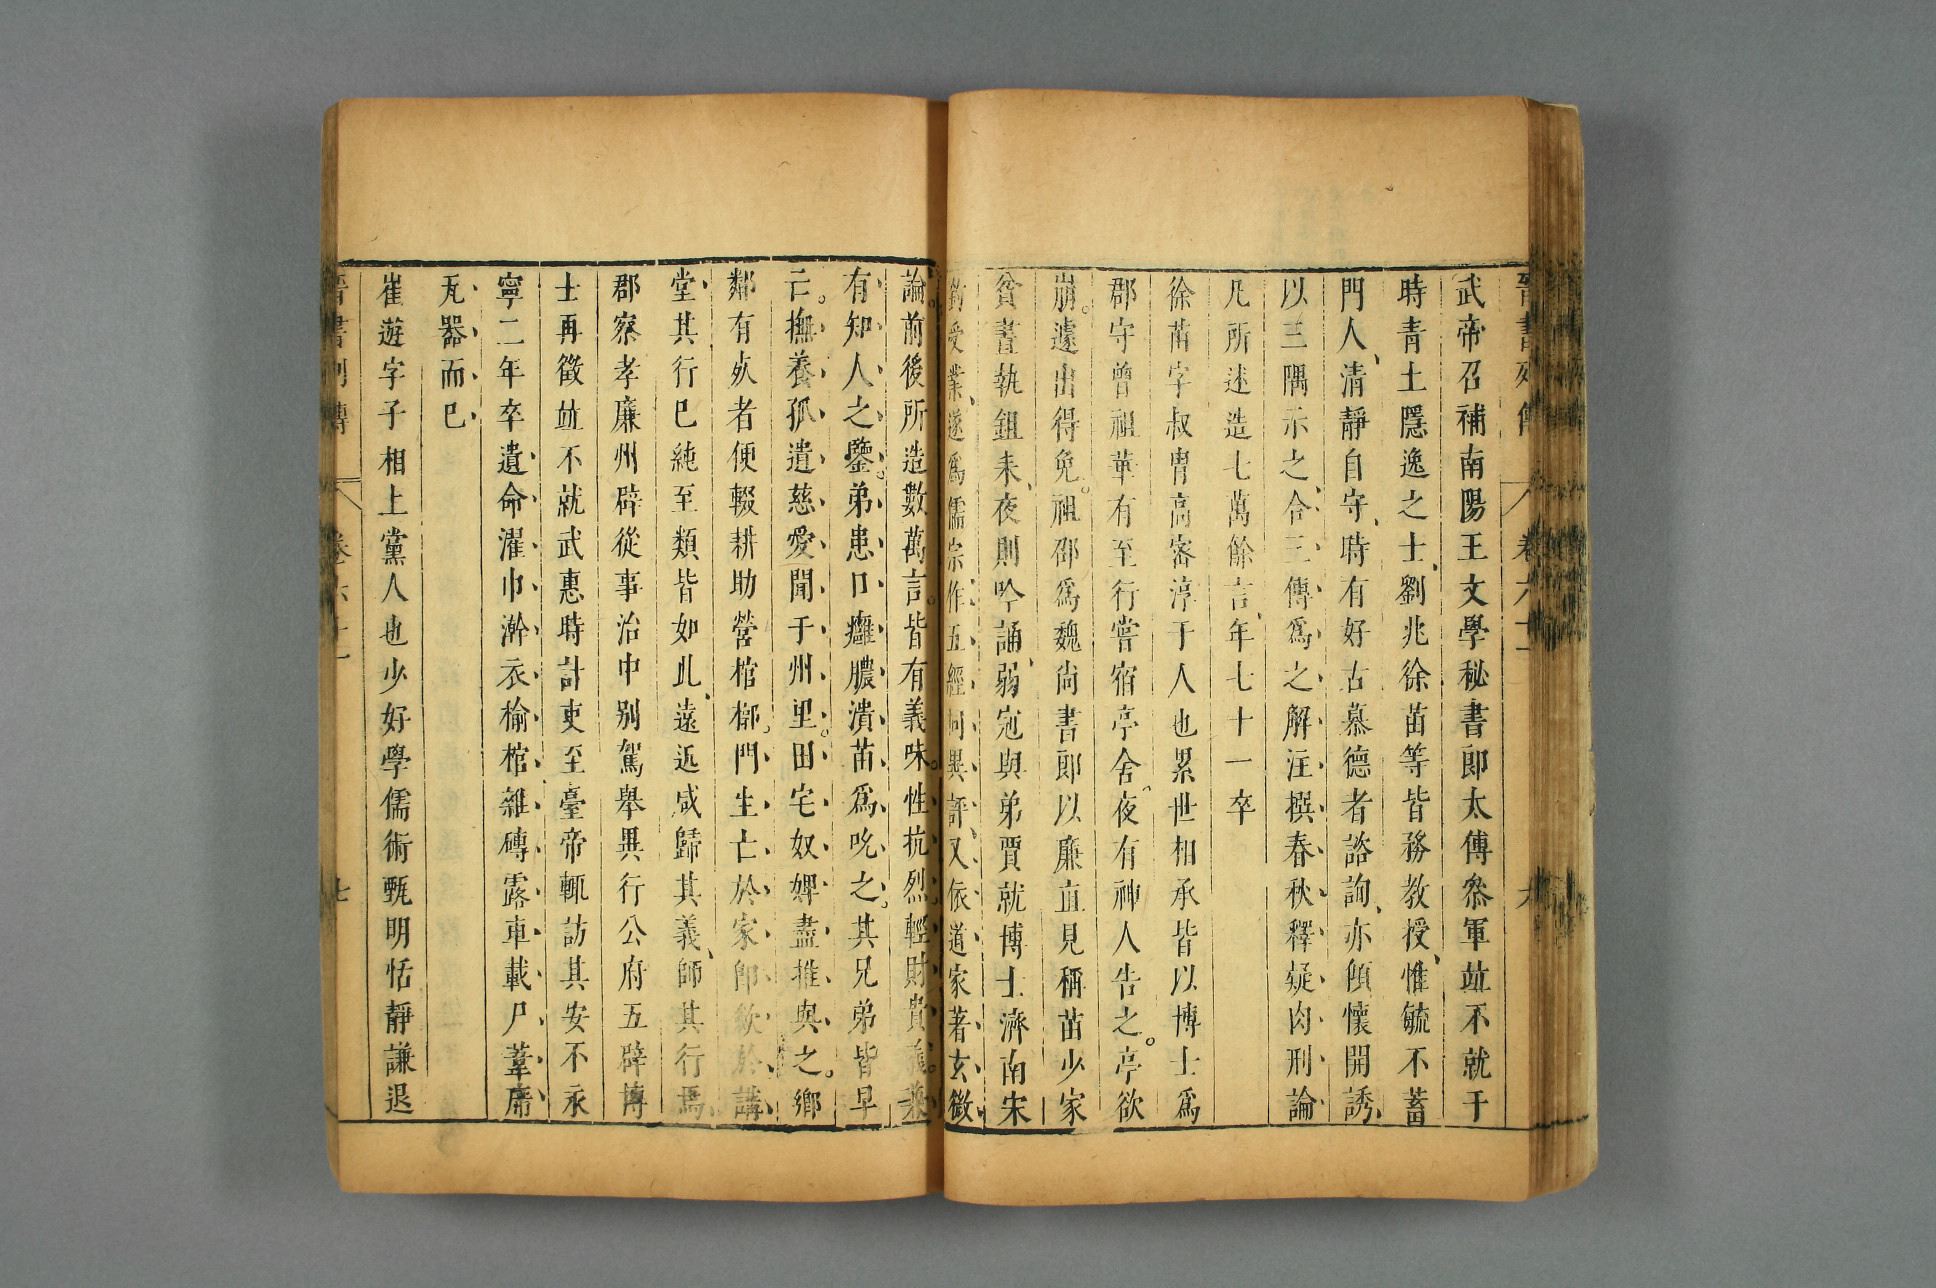 晉書列傳 卷六十一 六
武帝召補南陽王文學秘書郎太傅叅軍竝不就于
時青土隱逸之士劉兆徐苗等皆務教授惟毓不蓄
門人清靜自守時有好古慕德者諮詢亦傾懷開誘
以三隅示之合三傳爲之解注撰春秋釋疑肉刑論
凡所述造七萬餘言年七十一卒
徐苗字叔胄高密淳于人也累世相承皆以博士爲
郡守曾祖華有至行嘗宿亭舍夜有神人告之亭欲
崩遽出得免祖邵爲魏尚書郎以廉直見稱苗少家
貧晝執鉏耒夜則吟誦弱冠與弟賈就博士濟南宋
鈞受業遂爲儒宗作五經同異評又依道家著玄微
論前後所造數萬言皆有義味性抗烈輕財貴義兼
有知人之鑒弟患口癰膿潰苗爲吮之其兄弟皆早
亡撫養孤遺慈愛聞于州里田宅奴婢盡推與之鄉
鄰有死者便輟耕助營棺槨門生亡於家即斂於講
堂其行已純至類皆如此遠近咸歸其義師其行焉
郡察孝廉州辟從事治中别駕舉異行公府五辟博
士再徵竝不就武惠時計吏至臺帝輒訪其安不永
寧二年卒遺命濯巾澣衣榆棺雜磚露車載尸葦席
瓦器而已
崔遊字子相上黨人也少好學儒術甄明恬靜謙退
晉書列傳 卷六十一 七